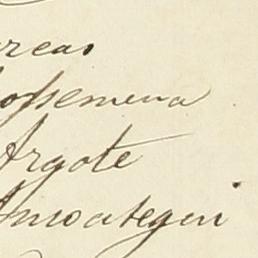 reas
ossemena
Argote
Amoategui